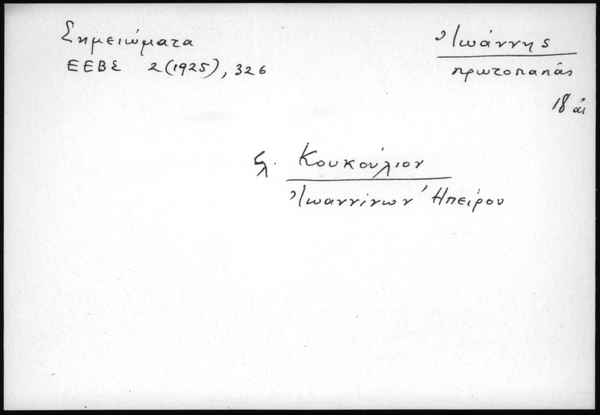 Σημειώματα
ΕΕΒΣ 2(1925), 326
Ἰωάννης
πρωτοπαπᾶς
18 αἰ
βλ. Κουκούλιον
Ἰωαννίνων Ἠπείρου